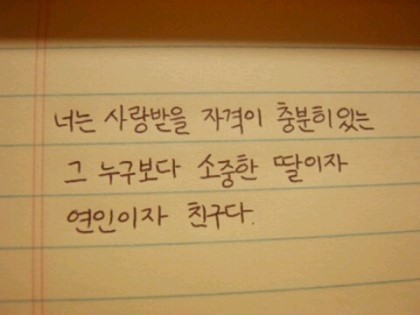 너는 사랑받을 자격이 충분히있는
그 누구보다 소중한 딸이자
연인이자 친구다.